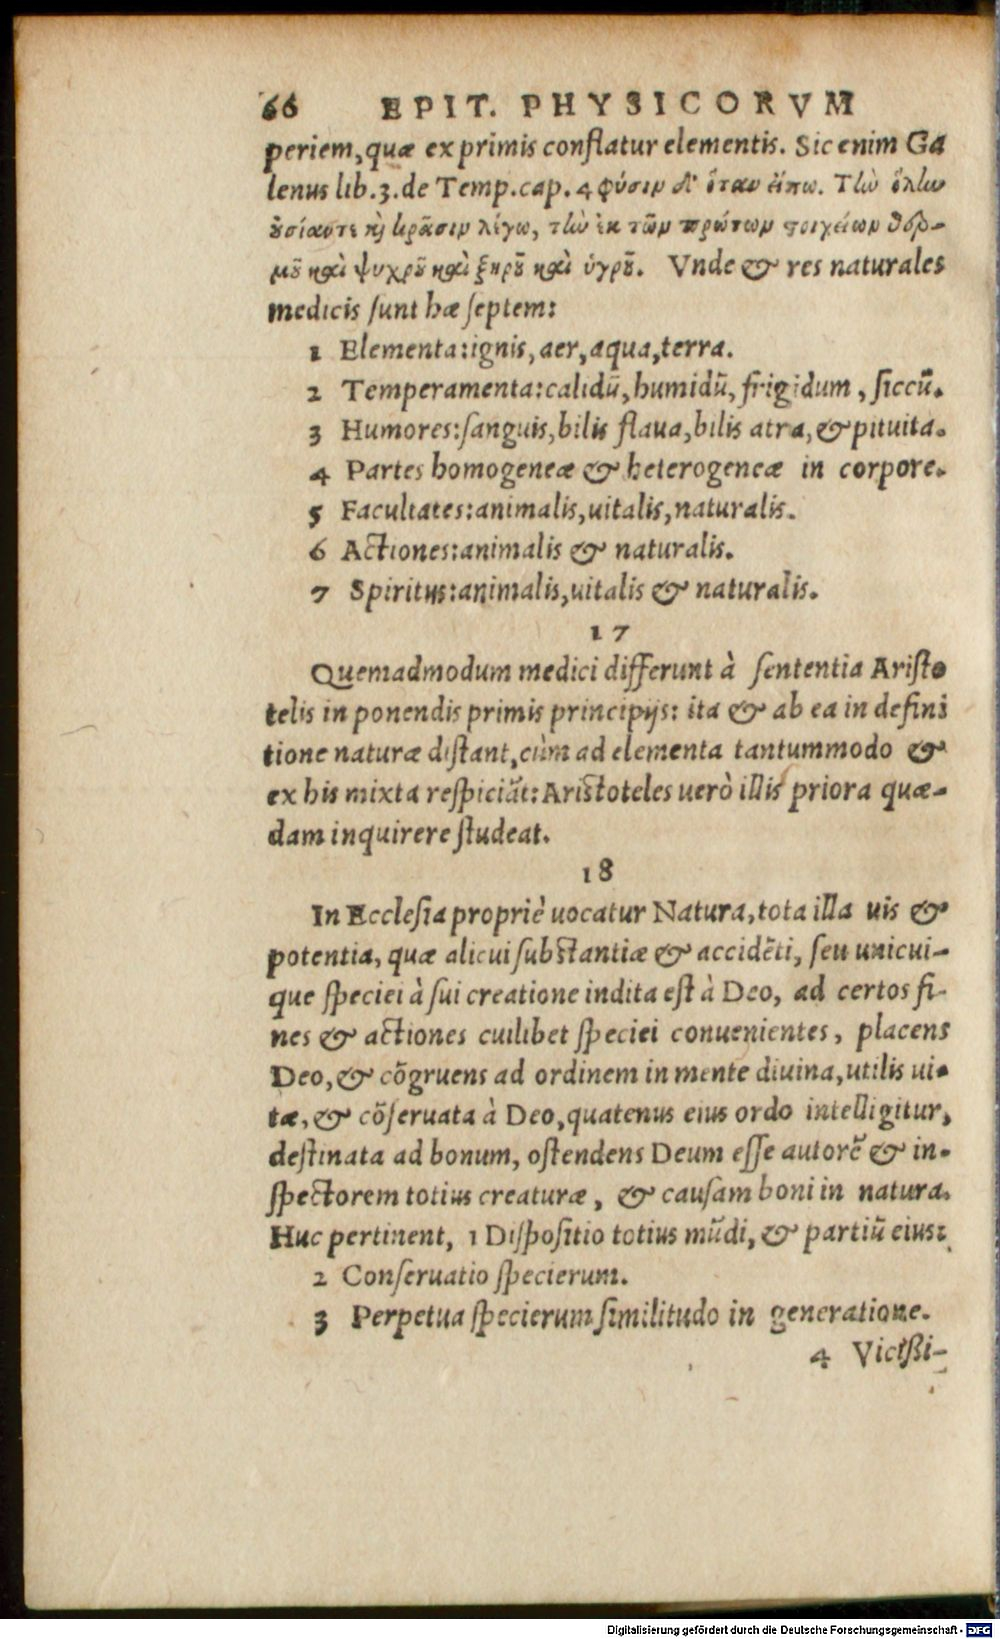 66 EPIT. PHYSICORVM
periem, quæ ex primis conflatur elementis. Sic enim Ga
lenus lib. 3. de Temp. cap. 4 φύσιν δ' ὅταν εἴπω. Τὼ ὅλων
ἐσίαντε κ κρᾶσιν λέγω, τὼ ἐκ τῶν πρώτων στοιχείων θερ-
μοῦ καὶ ψυχροῦ καὶ ξηροῦ καὶ ὑγροῦ. Vnde & res naturales
medicis ſunt hæ ſeptem:
1 Elementa: ignis, aer, aqua, terra.
2 Temperamenta: calidũ, humidũ, frigidum, ſiccũ.
3 Humores: ſanguis, bilis flaua, bilis atra, & pituita.
4 Partes homogeneæ & heterogeneæ in corpore.
5 Facultates: animalis, uitalis, naturalis.
6 Actiones: animalis & naturalis.
7 Spiritus: animalis, uitalis & naturalis.
17
Quemadmodum medici differunt à ſententia Ariſto
telis in ponendis primis principijs: ita & ab ea in defini
tione naturæ diſtant, cùm ad elementa tantummodo &
ex his mixta reſpiciãt: Ariſtoteles uerò illis priora quæ-
dam inquirere ſtudeat.
18
In Eccleſia propriè uocatur Natura, tota illa uis &
potentia, quæ alicui ſubſtantiæ & accidẽti, ſeu unicui-
que ſpeciei à ſui creatione indita eſt à Deo, ad certos fi-
nes & actiones cuilibet ſpeciei conuenientes, placens
Deo, & cõgruens ad ordinem in mente diuina, utilis ui-
tæ, & cõſeruata à Deo, quatenus eius ordo intelligitur,
deſtinata ad bonum, oſtendens Deum eſſe autorẽ & in-
ſpectorem totius creaturæ, & cauſam boni in natura.
Huc pertinent, 1 Diſpoſitio totius mũdi, & partiũ eius:
2 Conſeruatio ſpecierum.
3 Perpetua ſpecierum ſimilitudo in generatione.
4 Vicißi-
Digitalisierung gefördert durch die Deutsche Forschungsgemeinschaft - DFG